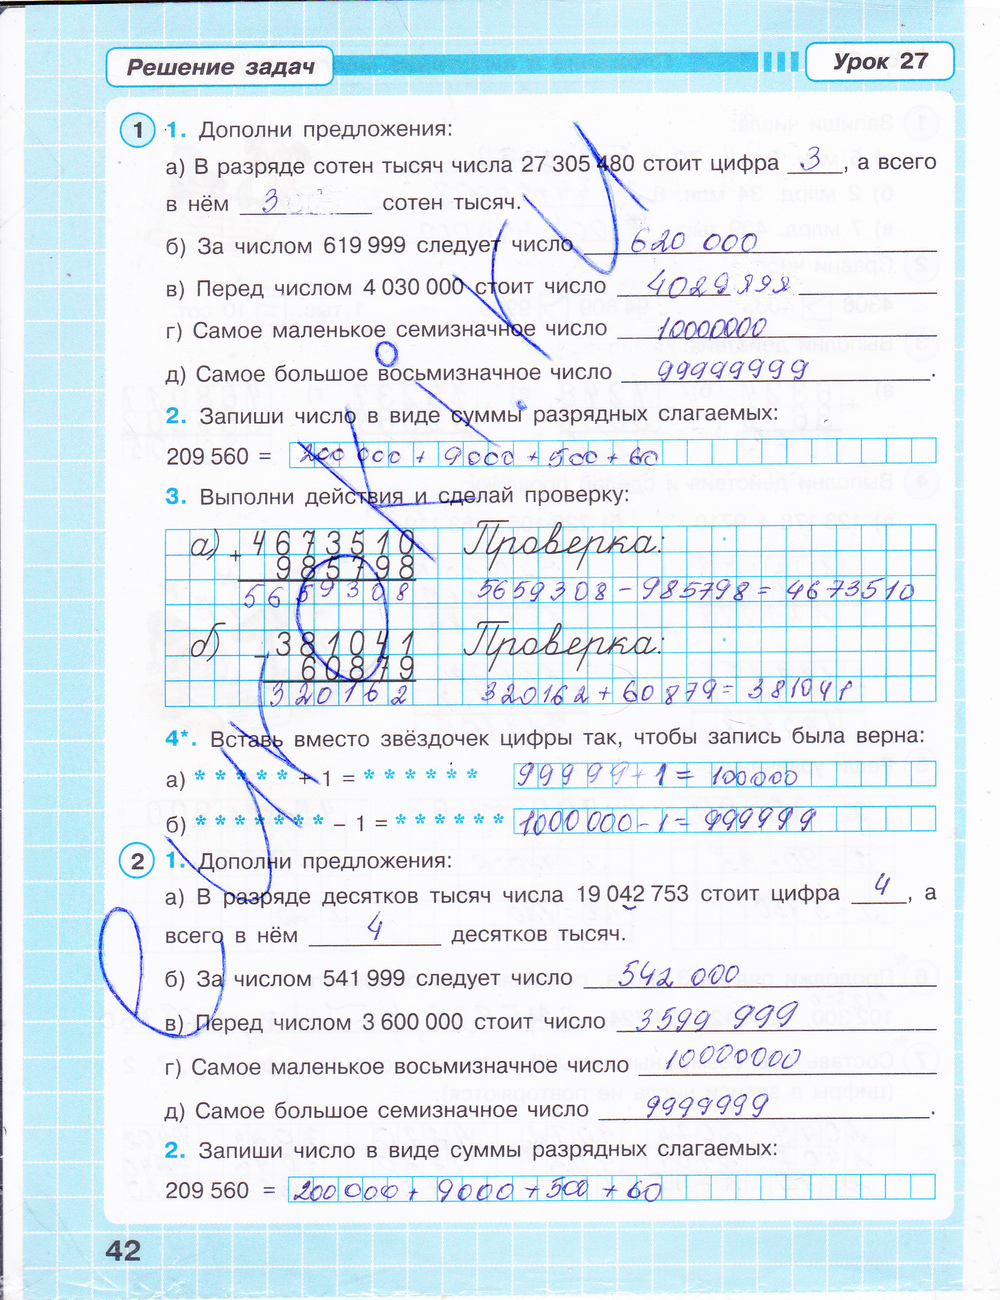 Решение задач
Урок 27
1 1. Дополни предложения:
а) В разряде сотен тысяч числа 27 305 480 стоит цифра 3, а всего
в нём 3 сотен тысяч.
б) За числом 619 999 следует число 620 000
в) Перед числом 4 030 000 стоит число 4029999
г) Самое маленькое семизначное число 10000000
д) Самое большое восьмизначное число 99999999.
2. Запиши число в виде суммы разрядных слагаемых:
209 560 = 200 000 + 9000 + 500 + 60
3. Выполни действия и сделай проверку:
а) + 4673510 Проверка:
985798
5659308 5659308 - 985798 = 4673510
б) - 381041 Проверка:
60879
320162 320162 + 60879 = 381041
4*. Вставь вместо звёздочек цифры так, чтобы запись была верна:
а) * * * * * + 1 = * * * * * * 99999 + 1 = 100000
б) * * * * * * * - 1 = * * * * * * 1000000 - 1 = 999999
2 1. Дополни предложения:
а) В разряде десятков тысяч числа 19 042 753 стоит цифра 4, а
всего в нём 4 десятков тысяч.
б) За числом 541 999 следует число 542 000
в) Перед числом 3 600 000 стоит число 3599 999
г) Самое маленькое восьмизначное число 10000000
д) Самое большое семизначное число 9999999.
2. Запиши число в виде суммы разрядных слагаемых:
209 560 = 200 000 + 9000 + 500 + 60
42